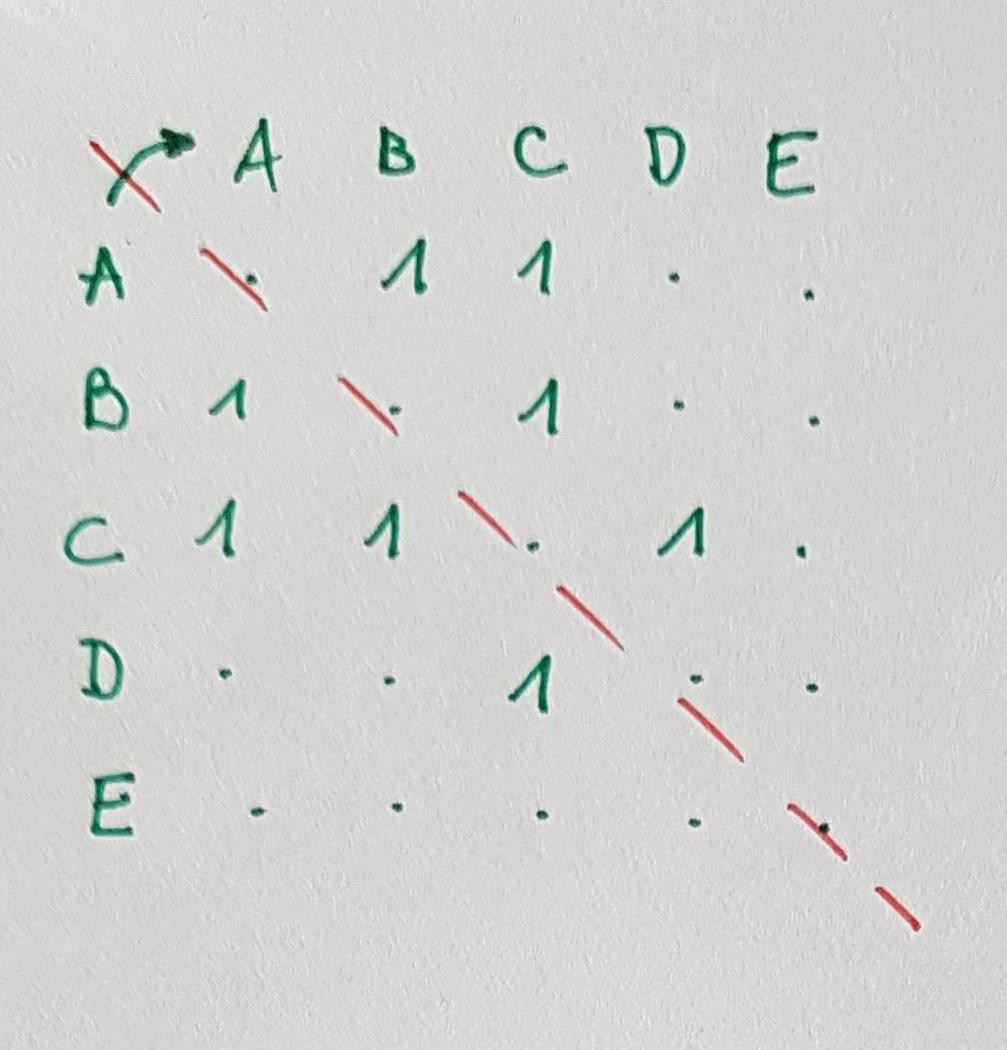 A B C D E
A . 1 1 . .
B 1 . 1 . .
C 1 1 . 1 .
D . . 1 . .
E . . . . .